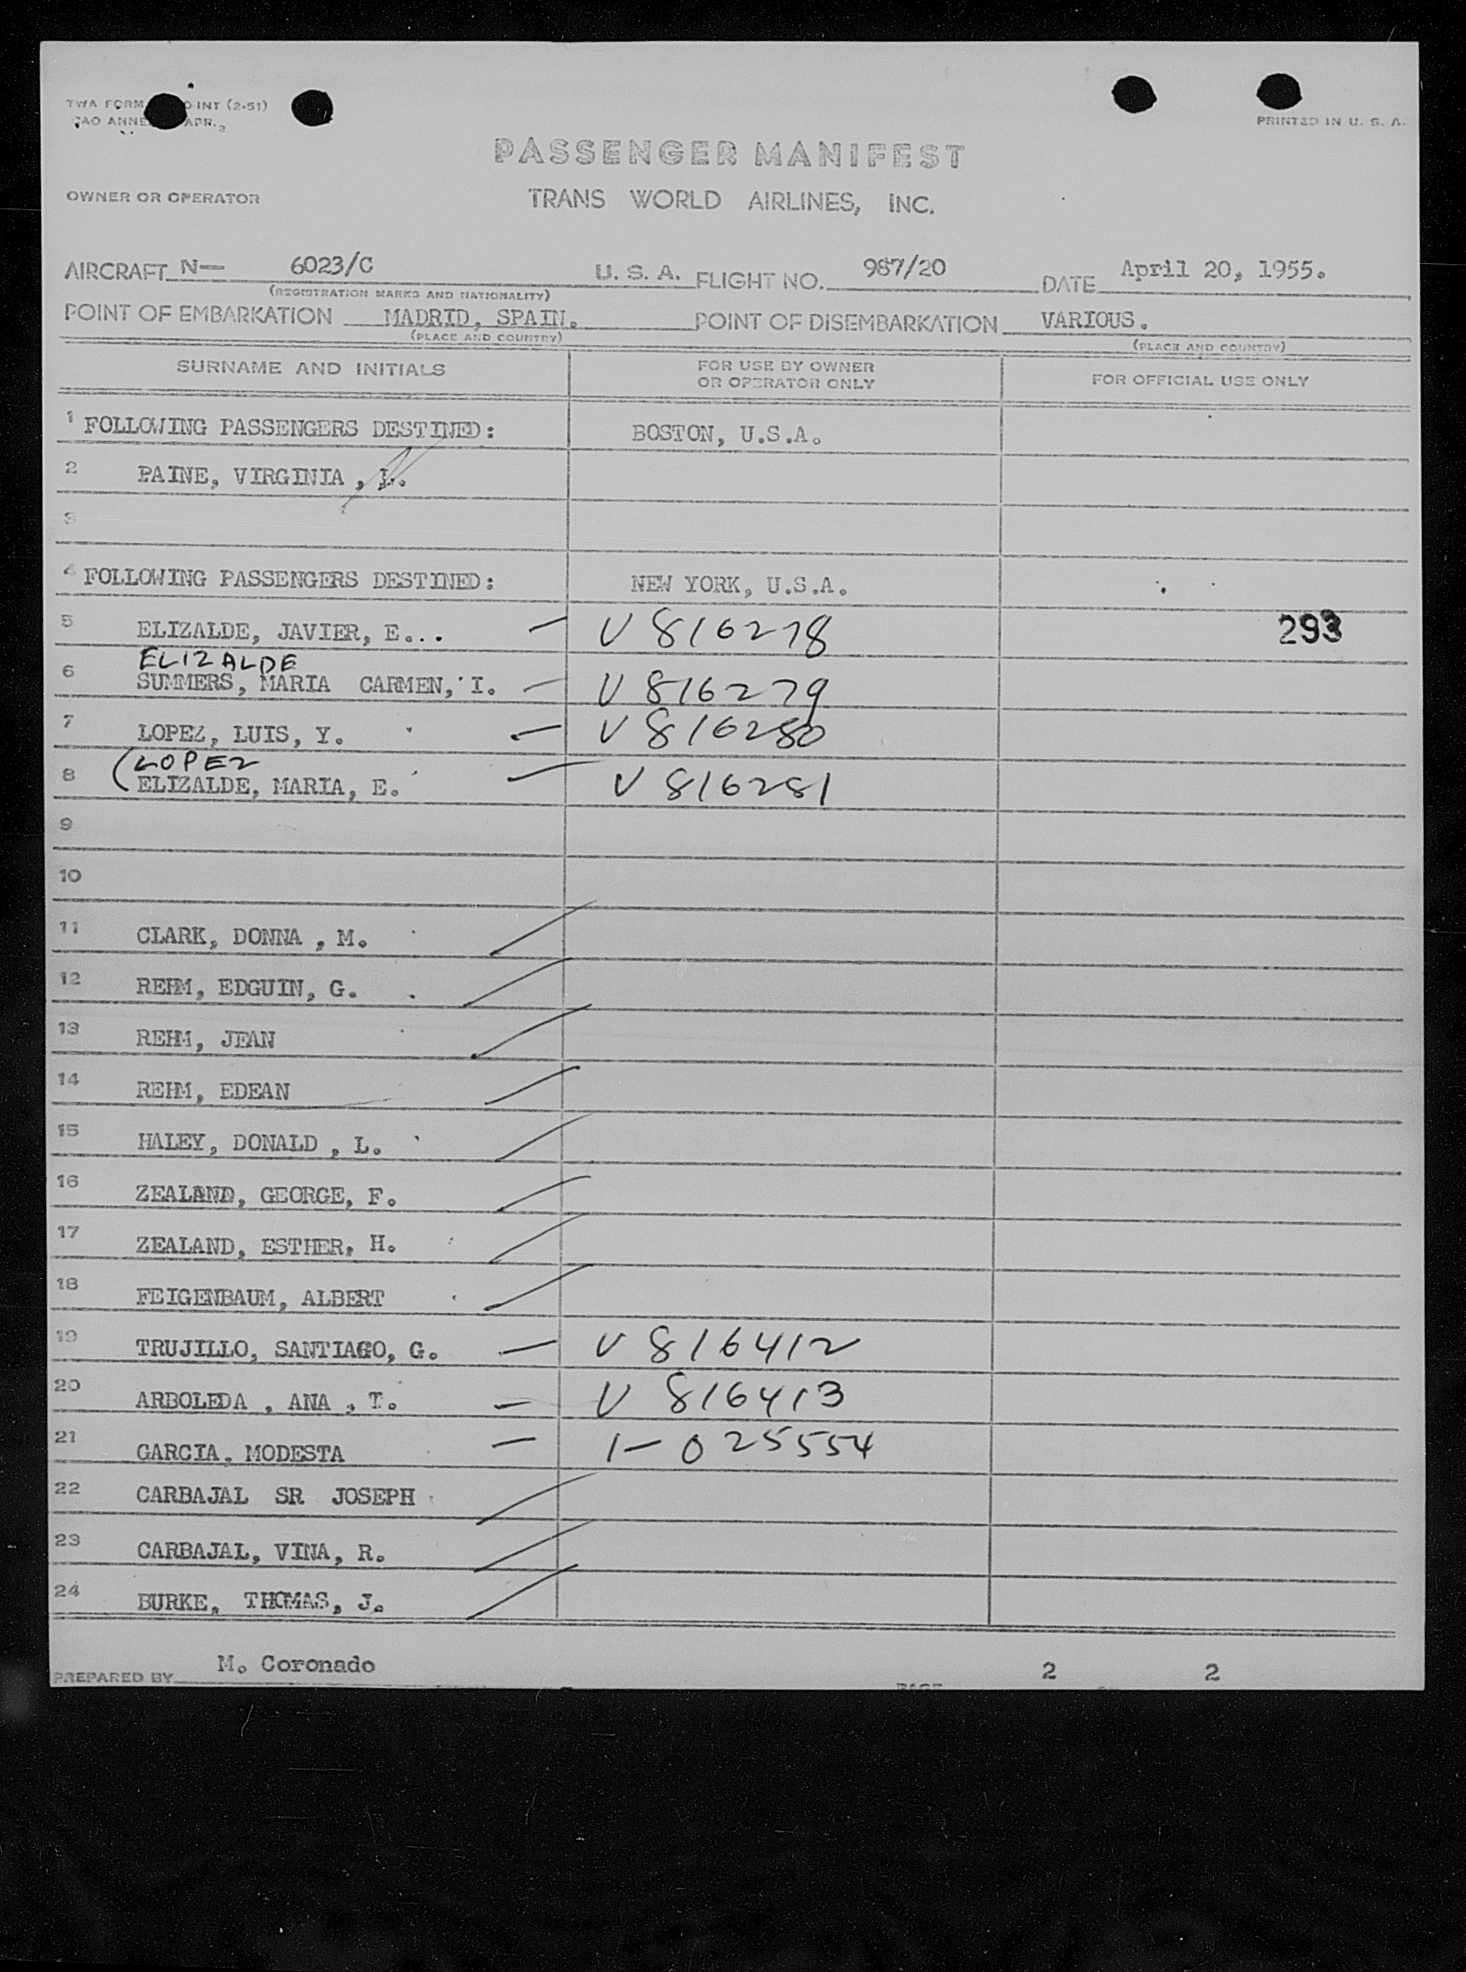 TWA FORM INT (2-51)
PRINTED IN U. S. A.
PASSENGER MANIFEST
OWNER OR OPERATOR TRANS WORLD AIRLINES, INC.
AIRCRAFT N— 6023/C U. S. A. FLIGHT NO. 987/20 DATE April 20, 1955.
(REGISTRATION MARKS AND NATIONALITY)
POINT OF EMBARKATION MADRID, SPAIN. POINT OF DISEMBARKATION VARIOUS.
(PLACE AND COUNTRY) (PLACE AND COUNTRY)
SURNAME AND INITIALS FOR USE BY OWNER OR OPERATOR ONLY FOR OFFICIAL USE ONLY
1 FOLLOWING PASSENGERS DESTINED: BOSTON, U.S.A.
2 PAINE, VIRGINIA , L.
3
4 FOLLOWING PASSENGERS DESTINED: NEW YORK, U.S.A.
5 ELIZALDE, JAVIER, E... — V 816278 293
ELIZALDE
6 SUMMERS, MARIA CARMEN, I. — V 816279
7 LOPEZ, LUIS, Y. — V 816280
(LOPEZ
8 ELIZALDE, MARIA, E. — V 816281
9
10
11 CLARK, DONNA , M.
12 REHM, EDGUIN, G.
13 REHM, JEAN
14 REHM, EDEAN
15 HALEY, DONALD , L.
16 ZEALAND, GEORGE, F.
17 ZEALAND, ESTHER, H.
18 FEIGENBAUM, ALBERT
19 TRUJILLO, SANTIAGO, G. — V 816412
20 ARBOLEDA , ANA , T. — V 816413
21 GARCIA, MODESTA — 1-025554
22 CARBAJAL SR JOSEPH
23 CARBAJAL, VINA, R.
24 BURKE, THOMAS, J.
PREPARED BY M. Coronado PAGE 2 2